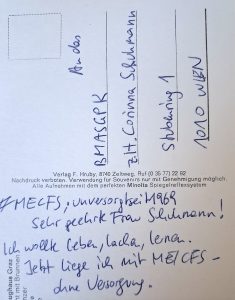 An das
BMASGPK
z.H. Corinna Schuhmann
Stubenring 1
1010 WIEN
Verlag F. Hruby, 8740 Zeltweg, Ruf (0 35 77) 22 82
Nachdruck verboten. Verwendung für Souvenirs nur mit Genehmigung möglich.
Alle Aufnahmen mit dem perfekten Minolta Spiegelreflexsystem
#MECFS, unversorgtseit1969
Sehr geehrte Frau Schuhmann!
Ich wollte leben, lachen, lernen.
Jetzt liege ich mit ME/CFS -
ohne Versorgung.
ughaus Graz